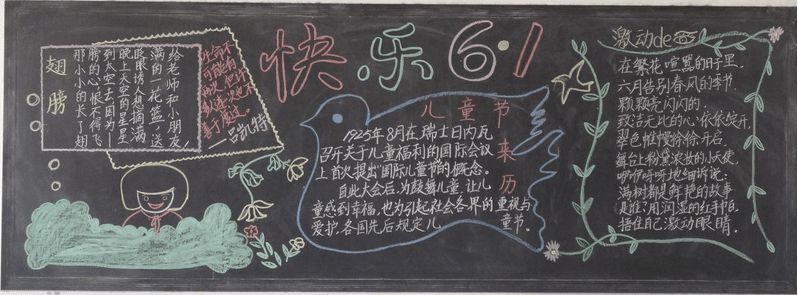 快乐6·1
翅膀
给老师和小朋友,
满满的一花篮,送
眨眼诱人想摘满
晚上天空的星星
到太空去,因为一
膀的心,恨不得飞
那小小的长了翅
生命不
可能有
两次,也许
一次也不
善于度过。
—吕凯特
儿童节来历
1925年8月在瑞士日内瓦
召开关于儿童福利的国际会议
上首次提出国际儿童节的概念。
自此大会后,为鼓舞儿童,让儿
童感到幸福,也为引起社会各界的重视与
爱护,各国先后规定儿童节。
激动de
在繁花喧嚣的日子里
六月告别春风的季节
颗颗亮闪闪的
致洁无比的心,依依绽开
翠色帷幔徐徐开启
舞台上粉黛浓妆的小天使
咿咿呀呀地细听说:
满树都是鲜艳的故事
是谁,用润湿的红手帕
捂住自己激动眼睛.